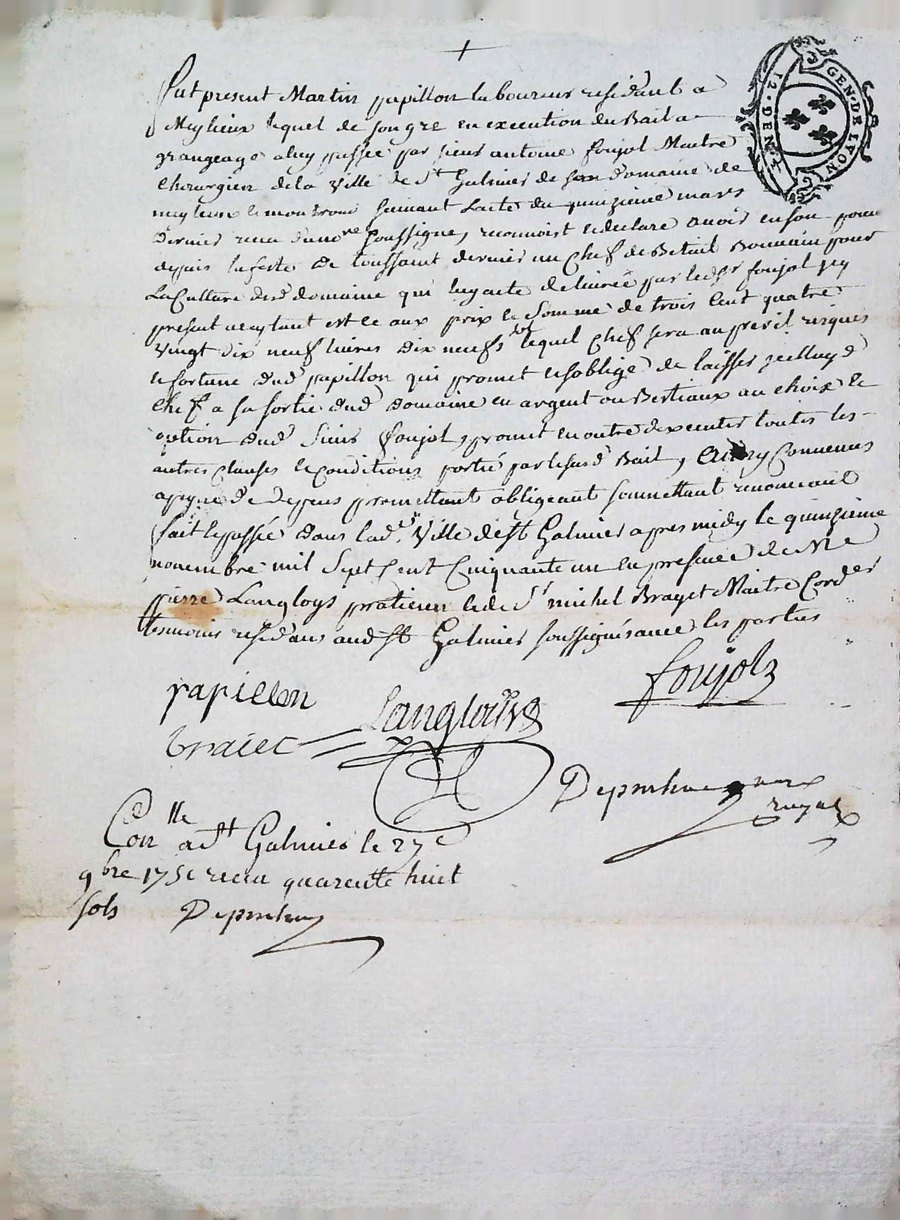 GEN. DE LYON
12 DEN
fut present Martin papillon laboureur residant a
Meylieux lequel de son gre en execution du Bail a
grangeage a luy passée par sieur antoine foujol Maitre
Chirurgien de la Ville de St Galmier de son domaine de
meylieux le montrond suivant L'acte du quinzieme mars
dernier receu du nore soussigne, reconnoist et declare avoir en son pouu
depuis la feste de toussaint dernier un Chef de Betail Bouvain pour
La Culture dud domaine qui luy a ete delivrée par led sr foujol icy
present acceptant est ce aux prix et Somme de trois Cent quatre
Vingt dix neuf livres dix neuf sols lequel Chef sera au peril risques
et fortune dud papillon qui promet et s'oblige de laisser icelluy d
Chef a sa sortie dud domaine en argent ou Bestiaux au choix et
option dud Sieur foujol, promet en outre d'executer toutes les
autres Clauses et Conditions portié par le susd Bail, Convenues
a peyne de depens promettant obligeant soumettant renonceant
fait et passée dans lad Ville de St Galmier apres midy le quinzieme
novembre mil Sept Cent Cinquante un en presence de Me
pierre Langloys praticien et de Sr michel Brayet Maitre Corder
tesmoins residans aud St Galmier soussignés avec les parties
papillon Langloys foujolz
braiet
royal
Conlle a St Galmier le 27e
9bre 1751 receu quarente huit
sols